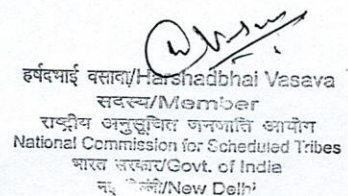 हर्षदभाई वसावा/Harshadbhai Vasava
सदस्य/Member
राष्ट्रीय अनुसूचित जनजाति आयोग
National Commission for Scheduled Tribes
भारत सरकार/Govt. of India
नई दिल्ली/New Delhi